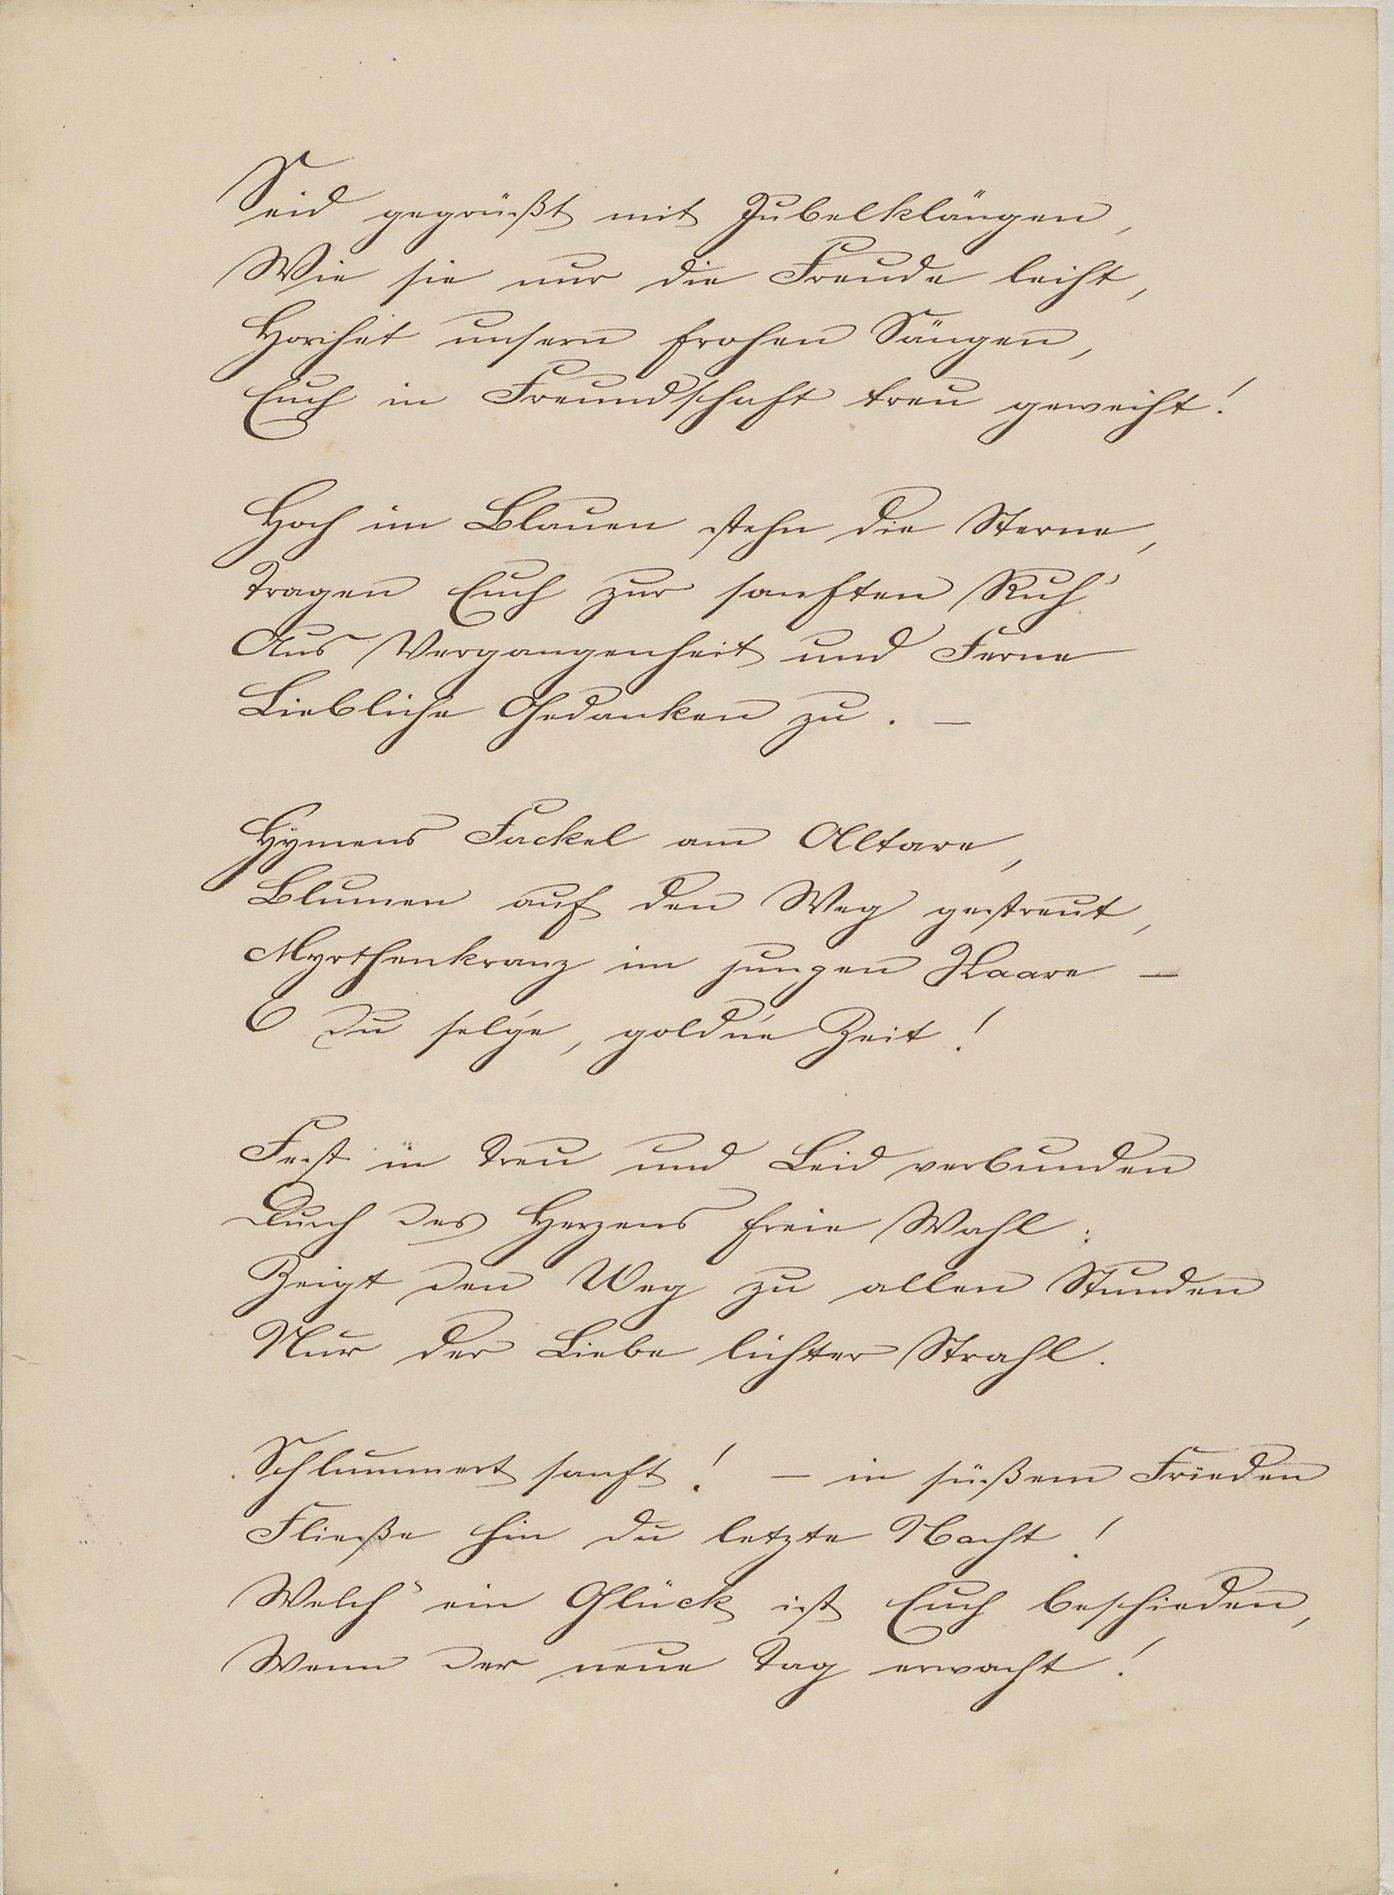 Seid gegrüßt mit Jubelklängen,
Wie sie nur die Freude leiht,
Horchet unsern frohen Sängen,
Euch in Freundschaft treu geweiht!
Hoch im Blauen stehn die Sterne,
Tragen Euch zur sanften Ruh'
Aus Vergangenheit und Ferne
Liebliche Gedanken zu. —
Hymens Fackel am Altare,
Blumen auf den Weg gestreut,
Myrthenkranz im jungen Haare —
O du sel'ge, gold'ne Zeit!
Fest in Treu und Leid verbunden
Durch des Herzens freie Wahl:
Zeigt den Weg zu allen Stunden
Nur der Liebe lichter Strahl.
Schlummert sanft! — in süßem Frieden
Fließe hin du letzte Nacht!
Welch' ein Glück ist Euch beschieden,
Wenn der neue Tag erwacht!